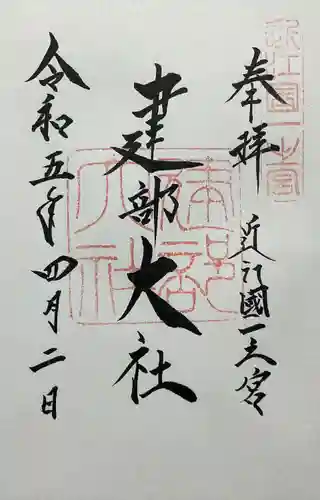 奉拝
近江國一之宮
建部大社
令和五年四月二日
近江國一之宮
建部大社